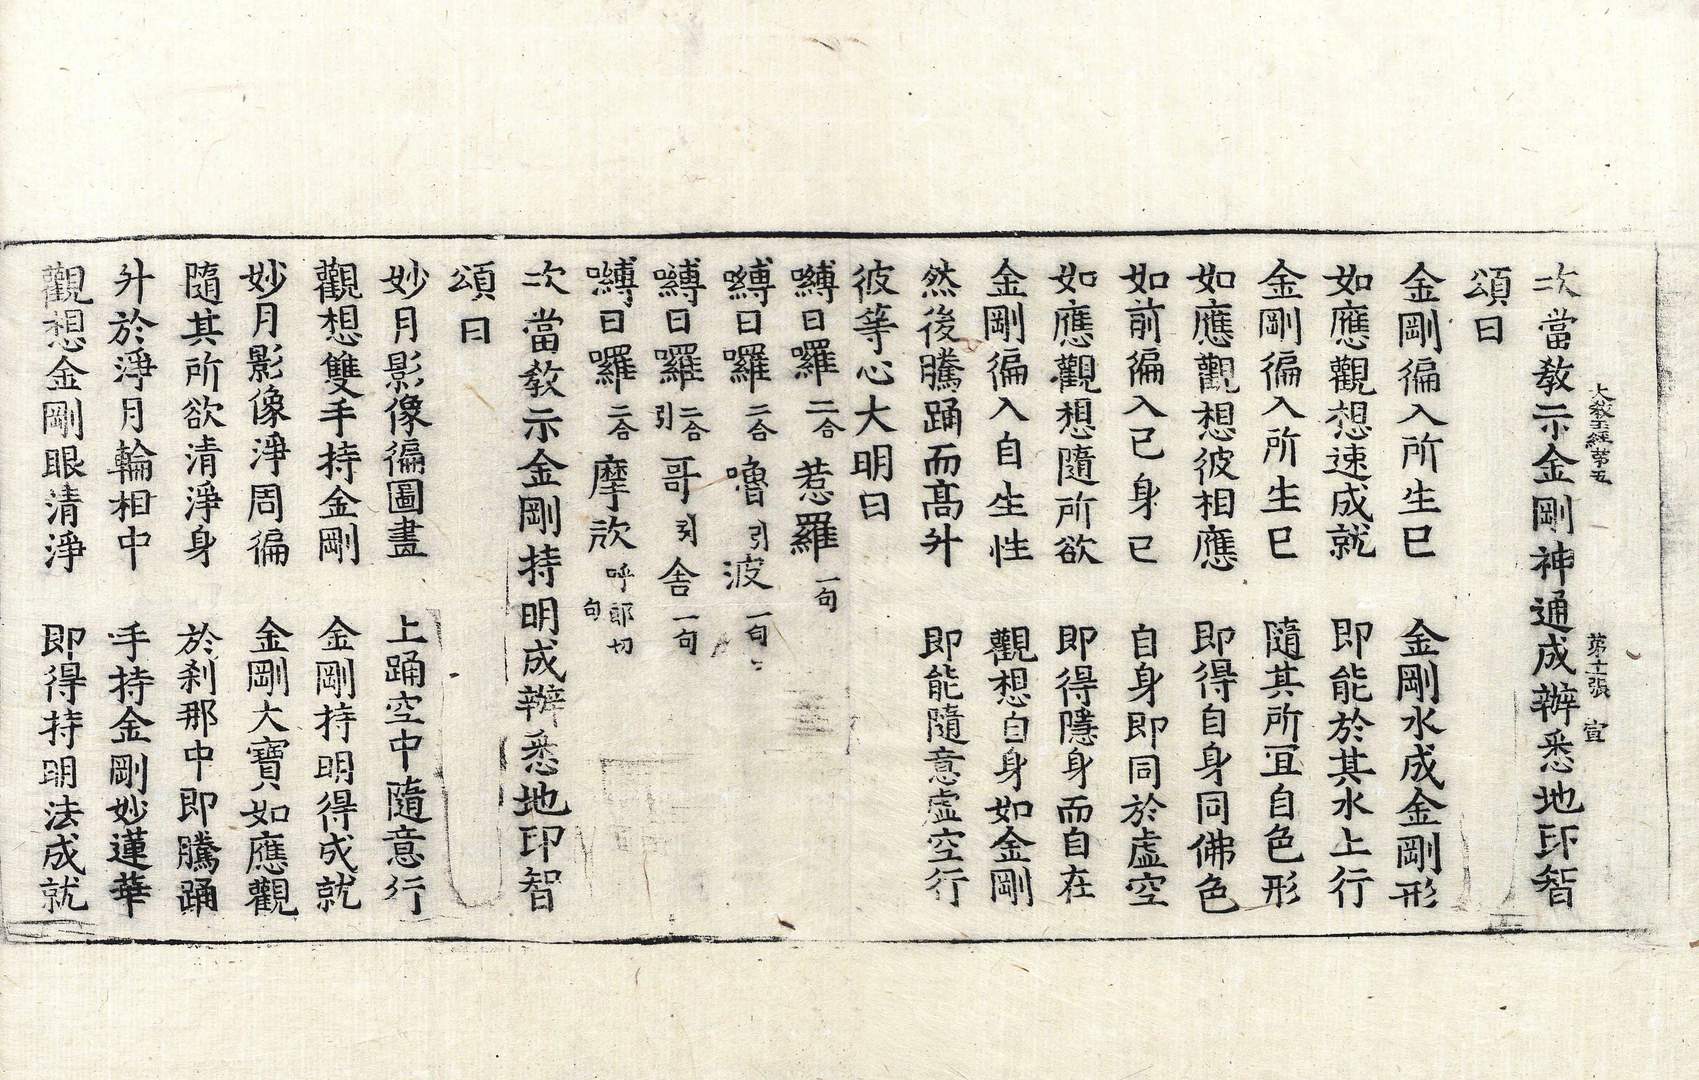 大教王經第五　第十二張　宣
次當教示金剛神通成辦悉地印智
頌曰
金剛徧入所生已　金剛水成金剛形
如應觀想速成就　即能於其水上行
金剛徧入所生已　隨其所冝自色形
如應觀想彼相應　即得自身同佛色
如前徧入已身已　自身即同於虛空
如應觀想隨所欲　即得隱身而自在
金剛徧入自生性　觀想自身如金剛
然後騰踊而高升　即能隨意虛空行
彼等心大明曰
嚩日囉二合惹羅一句
嚩日囉二合嚕引波一句
嚩日囉二合引哥引舍一句
嚩日囉二合摩㰠呼郎切句
次當教示金剛持明成辦悉地印智
頌曰
妙月影像徧圖畫　上踊空中隨意行
觀想雙手持金剛　金剛持明得成就
妙月影像淨周徧　金剛大寶如應觀
隨其所欲清淨身　於刹那中即騰踊
升於淨月輪相中　手持金剛妙蓮華
觀想金剛眼清淨　即得持明法成就